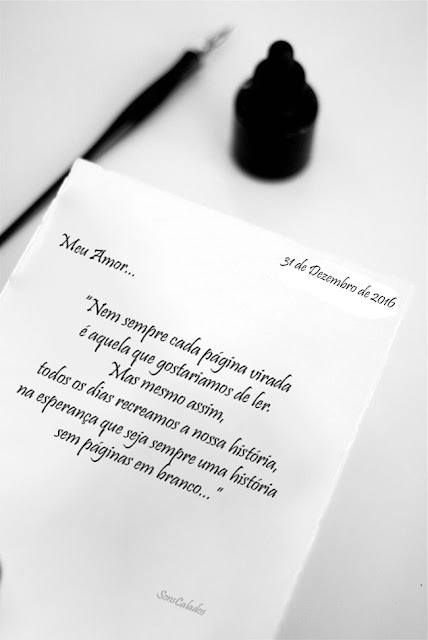 31 de Dezembro de 2016
Meu Amor...
"Nem sempre cada página virada
é aquela que gostariamos de ler.
Mas mesmo assim,
todos os dias recreamos a nossa história,
na esperança que seja sempre uma história
sem páginas em branco... "
SonsCalados